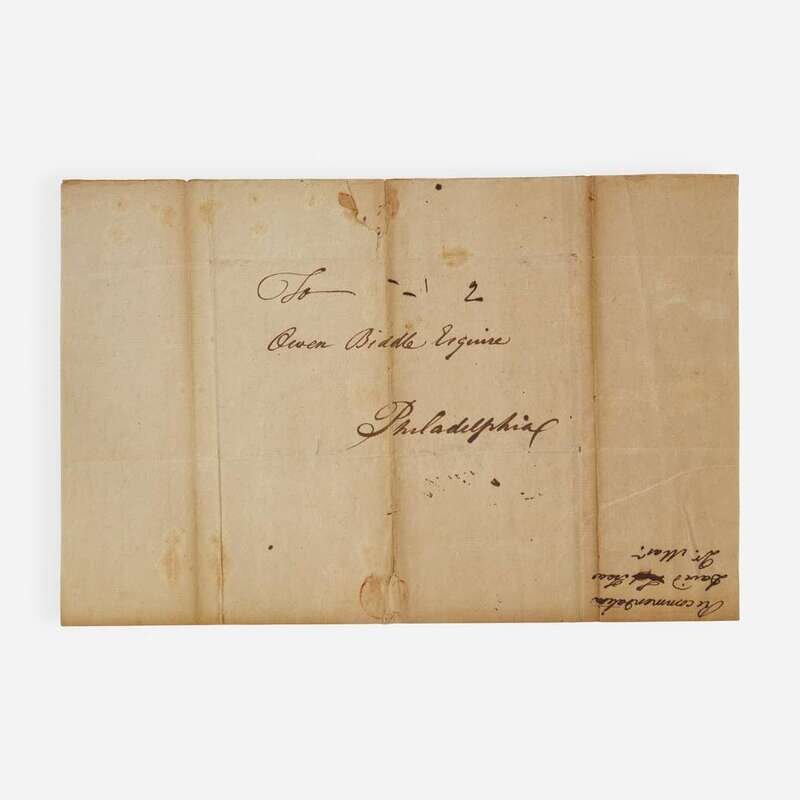 To 2
Owen Biddle Esquire
Philadelphia
Recommendation
David
Dr. Mar